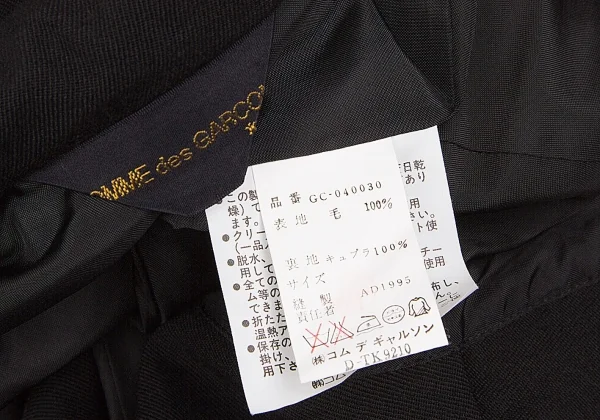 COMME des GARCON
品番 GC-040030
表地 毛 100%
裏地 キュプラ100%
サイズ
縫製
責任者 AD1995
㈱コム デ ギャルソン
D-TK9210
この製
燥)て
ます。
●クリー
(一品
●脱水、
用して
●全ての
ム等の
できま
●折たた
温熱ア
●保存の
掛け、
用下さ
日乾
あり
用
さい。
ト使
チー
使用
布し、
ん。
㈱コム